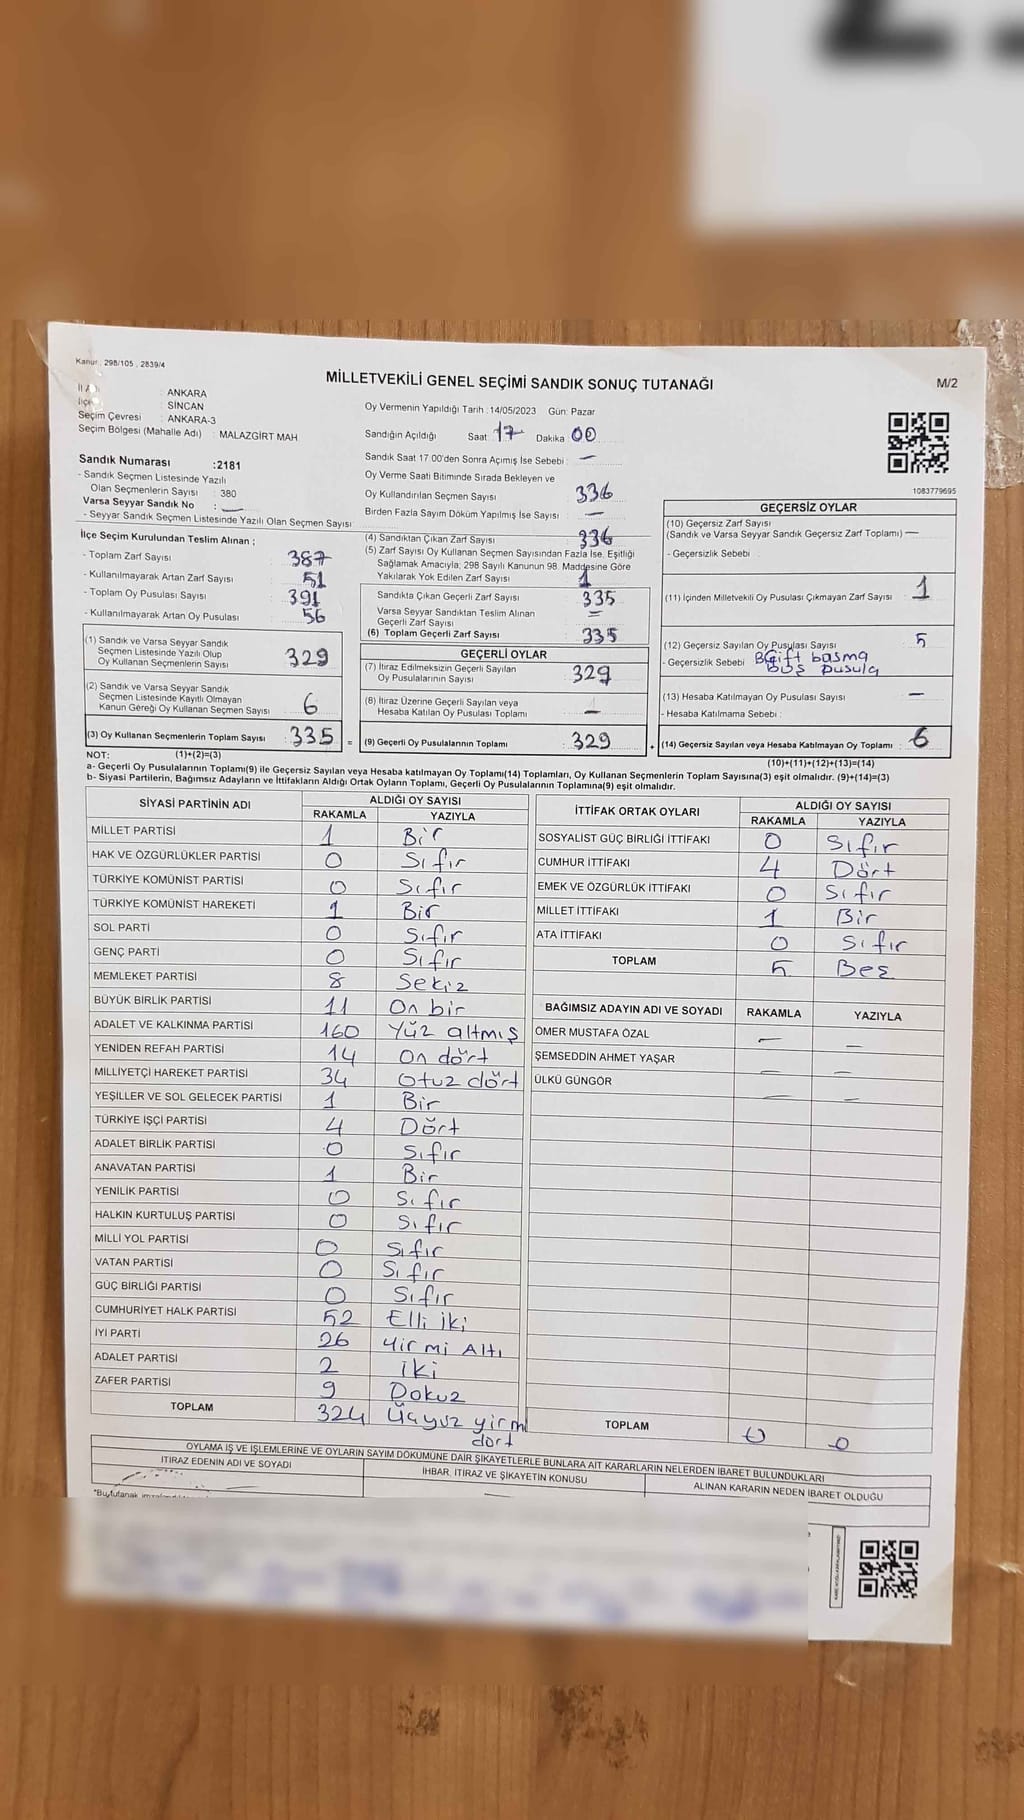 Kanun : 298/105 , 2839/4
MİLLETVEKİLİ GENEL SEÇİMİ SANDIK SONUÇ TUTANAĞI
M/2
İl Adı : ANKARA
İlçe : SİNCAN
Seçim Çevresi : ANKARA-3
Seçim Bölgesi (Mahalle Adı) : MALAZGİRT MAH
Sandık Numarası :2181
- Sandık Seçmen Listesinde Yazılı
Olan Seçmenlerin Sayısı : 380
Varsa Seyyar Sandık No : —
- Seyyar Sandık Seçmen Listesinde Yazılı Olan Seçmen Sayısı
İlçe Seçim Kurulundan Teslim Alınan ;
- Toplam Zarf Sayısı 387
- Kullanılmayarak Artan Zarf Sayısı 51
- Toplam Oy Pusulası Sayısı 391
- Kullanılmayarak Artan Oy Pusulası 56
(1) Sandık ve Varsa Seyyar Sandık
Seçmen Listesinde Yazılı Olup
Oy Kullanan Seçmenlerin Sayısı 329
(2) Sandık ve Varsa Seyyar Sandık
Seçmen Listesinde Kayıtlı Olmayan
Kanun Gereği Oy Kullanan Seçmen Sayısı 6
(3) Oy Kullanan Seçmenlerin Toplam Sayısı : 335 =
Oy Vermenin Yapıldığı Tarih :14/05/2023 Gün: Pazar
Sandığın Açıldığı Saat 17 Dakika 00
Sandık Saat 17:00'den Sonra Açılmış İse Sebebi : —
Oy Verme Saati Bitiminde Sırada Bekleyen ve
Oy Kullandırılan Seçmen Sayısı 336
Birden Fazla Sayım Döküm Yapılmış İse Sayısı : —
(4) Sandıktan Çıkan Zarf Sayısı 336
(5) Zarf Sayısı Oy Kullanan Seçmen Sayısından Fazla İse, Eşitliği
Sağlamak Amacıyla; 298 Sayılı Kanunun 98. Maddesine Göre
Yakılarak Yok Edilen Zarf Sayısı 1
Sandıkta Çıkan Geçerli Zarf Sayısı : 335
Varsa Seyyar Sandıktan Teslim Alınan
Geçerli Zarf Sayısı —
(6) Toplam Geçerli Zarf Sayısı 335
GEÇERLİ OYLAR
(7) İtiraz Edilmeksizin Geçerli Sayılan
Oy Pusulalarının Sayısı 329
(8) İtiraz Üzerine Geçerli Sayılan veya
Hesaba Katılan Oy Pusulası Toplamı —
(9) Geçerli Oy Pusulalarının Toplamı 329 +
1083779695
GEÇERSİZ OYLAR
(10) Geçersiz Zarf Sayısı
(Sandık ve Varsa Seyyar Sandık Geçersiz Zarf Toplamı) —
- Geçersizlik Sebebi :
(11) İçinden Milletvekili Oy Pusulası Çıkmayan Zarf Sayısı : 1
(12) Geçersiz Sayılan Oy Pusulası Sayısı 5
- Geçersizlik Sebebi : Çift basma
Boş pusula
(13) Hesaba Katılmayan Oy Pusulası Sayısı —
- Hesaba Katılmama Sebebi :
(14) Geçersiz Sayılan veya Hesaba Katılmayan Oy Toplamı : 6
NOT: (1)+(2)=(3)
(10)+(11)+(12)+(13)=(14)
a- Geçerli Oy Pusulalarının Toplamı(9) ile Geçersiz Sayılan veya Hesaba katılmayan Oy Toplamı(14) Toplamları, Oy Kullanan Seçmenlerin Toplam Sayısına(3) eşit olmalıdır. (9)+(14)=(3)
b- Siyasi Partilerin, Bağımsız Adayların ve İttifakların Aldığı Ortak Oyların Toplamı, Geçerli Oy Pusulalarının Toplamına(9) eşit olmalıdır.
SİYASİ PARTİNİN ADI ALDIĞI OY SAYISI
RAKAMLA YAZIYLA
MİLLET PARTİSİ 1 Bir
HAK VE ÖZGÜRLÜKLER PARTİSİ 0 Sıfır
TÜRKİYE KOMÜNİST PARTİSİ 0 Sıfır
TÜRKİYE KOMÜNİST HAREKETİ 1 Bir
SOL PARTİ 0 Sıfır
GENÇ PARTİ 0 Sıfır
MEMLEKET PARTİSİ 8 Sekiz
BÜYÜK BİRLİK PARTİSİ 11 On bir
ADALET VE KALKINMA PARTİSİ 160 Yüz altmış
YENİDEN REFAH PARTİSİ 14 On dört
MİLLİYETÇİ HAREKET PARTİSİ 34 Otuz dört
YEŞİLLER VE SOL GELECEK PARTİSİ 1 Bir
TÜRKİYE İŞÇİ PARTİSİ 4 Dört
ADALET BİRLİK PARTİSİ 0 Sıfır
ANAVATAN PARTİSİ 1 Bir
YENİLİK PARTİSİ 0 Sıfır
HALKIN KURTULUŞ PARTİSİ 0 Sıfır
MİLLİ YOL PARTİSİ 0 Sıfır
VATAN PARTİSİ 0 Sıfır
GÜÇ BİRLİĞİ PARTİSİ 0 Sıfır
CUMHURİYET HALK PARTİSİ 52 Elli iki
İYİ PARTİ 26 Yirmi Altı
ADALET PARTİSİ 2 İki
ZAFER PARTİSİ 9 Dokuz
TOPLAM 324 Üçyüz yirmi
dört
İTTİFAK ORTAK OYLARI ALDIĞI OY SAYISI
RAKAMLA YAZIYLA
SOSYALİST GÜÇ BİRLİĞİ İTTİFAKI 0 Sıfır
CUMHUR İTTİFAKI 4 Dört
EMEK VE ÖZGÜRLÜK İTTİFAKI 0 Sıfır
MİLLET İTTİFAKI 1 Bir
ATA İTTİFAKI 0 Sıfır
TOPLAM 5 Beş
BAĞIMSIZ ADAYIN ADI VE SOYADI RAKAMLA YAZIYLA
ÖMER MUSTAFA ÖZAL — —
ŞEMSEDDİN AHMET YAŞAR — —
ÜLKÜ GÜNGÖR — —
TOPLAM 0 0
OYLAMA İŞ VE İŞLEMLERİNE VE OYLARIN SAYIM DÖKÜMÜNE DAİR ŞİKAYETLERLE BUNLARA AİT KARARLARIN NELERDEN İBARET BULUNDUKLARI
İTİRAZ EDENİN ADI VE SOYADI İHBAR, İTİRAZ VE ŞİKAYETİN KONUSU ALINAN KARARIN NEDEN İBARET OLDUĞU